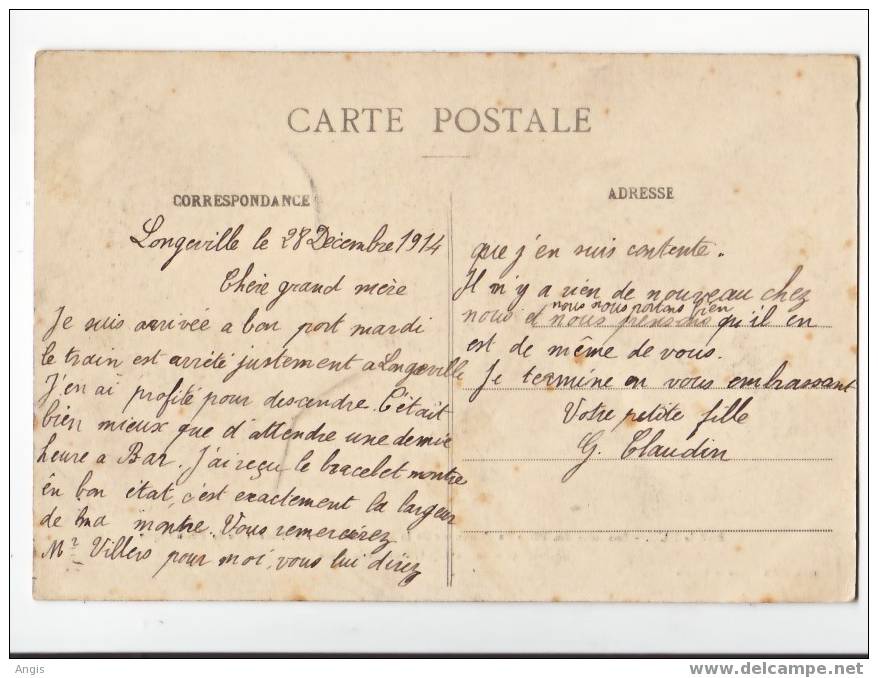 CARTE POSTALE
CORRESPONDANCE
Longeville le 28 Décembre 1914
Chère grand mère
Je suis arrivée a bon port mardi
le train est arrêté justement a Longeville
J'en ai profité pour descendre. C'était
bien mieux que d'attendre une demie
heure a Bar. J'ai reçu le bracelet montre
en bon état, c'est exactement la largeur
de ma montre. Vous remercirez
Mr Villers pour moi, vous lui direz
ADRESSE
que j'en suis contente.
Il n'y a rien de nouveau chez
nous nous portons bien
nous et nous pensons qu'il en
est de même de vous.
Je termine en vous embrassant
Votre petite fille
G. Claudin
Angis
www.delcampe.net